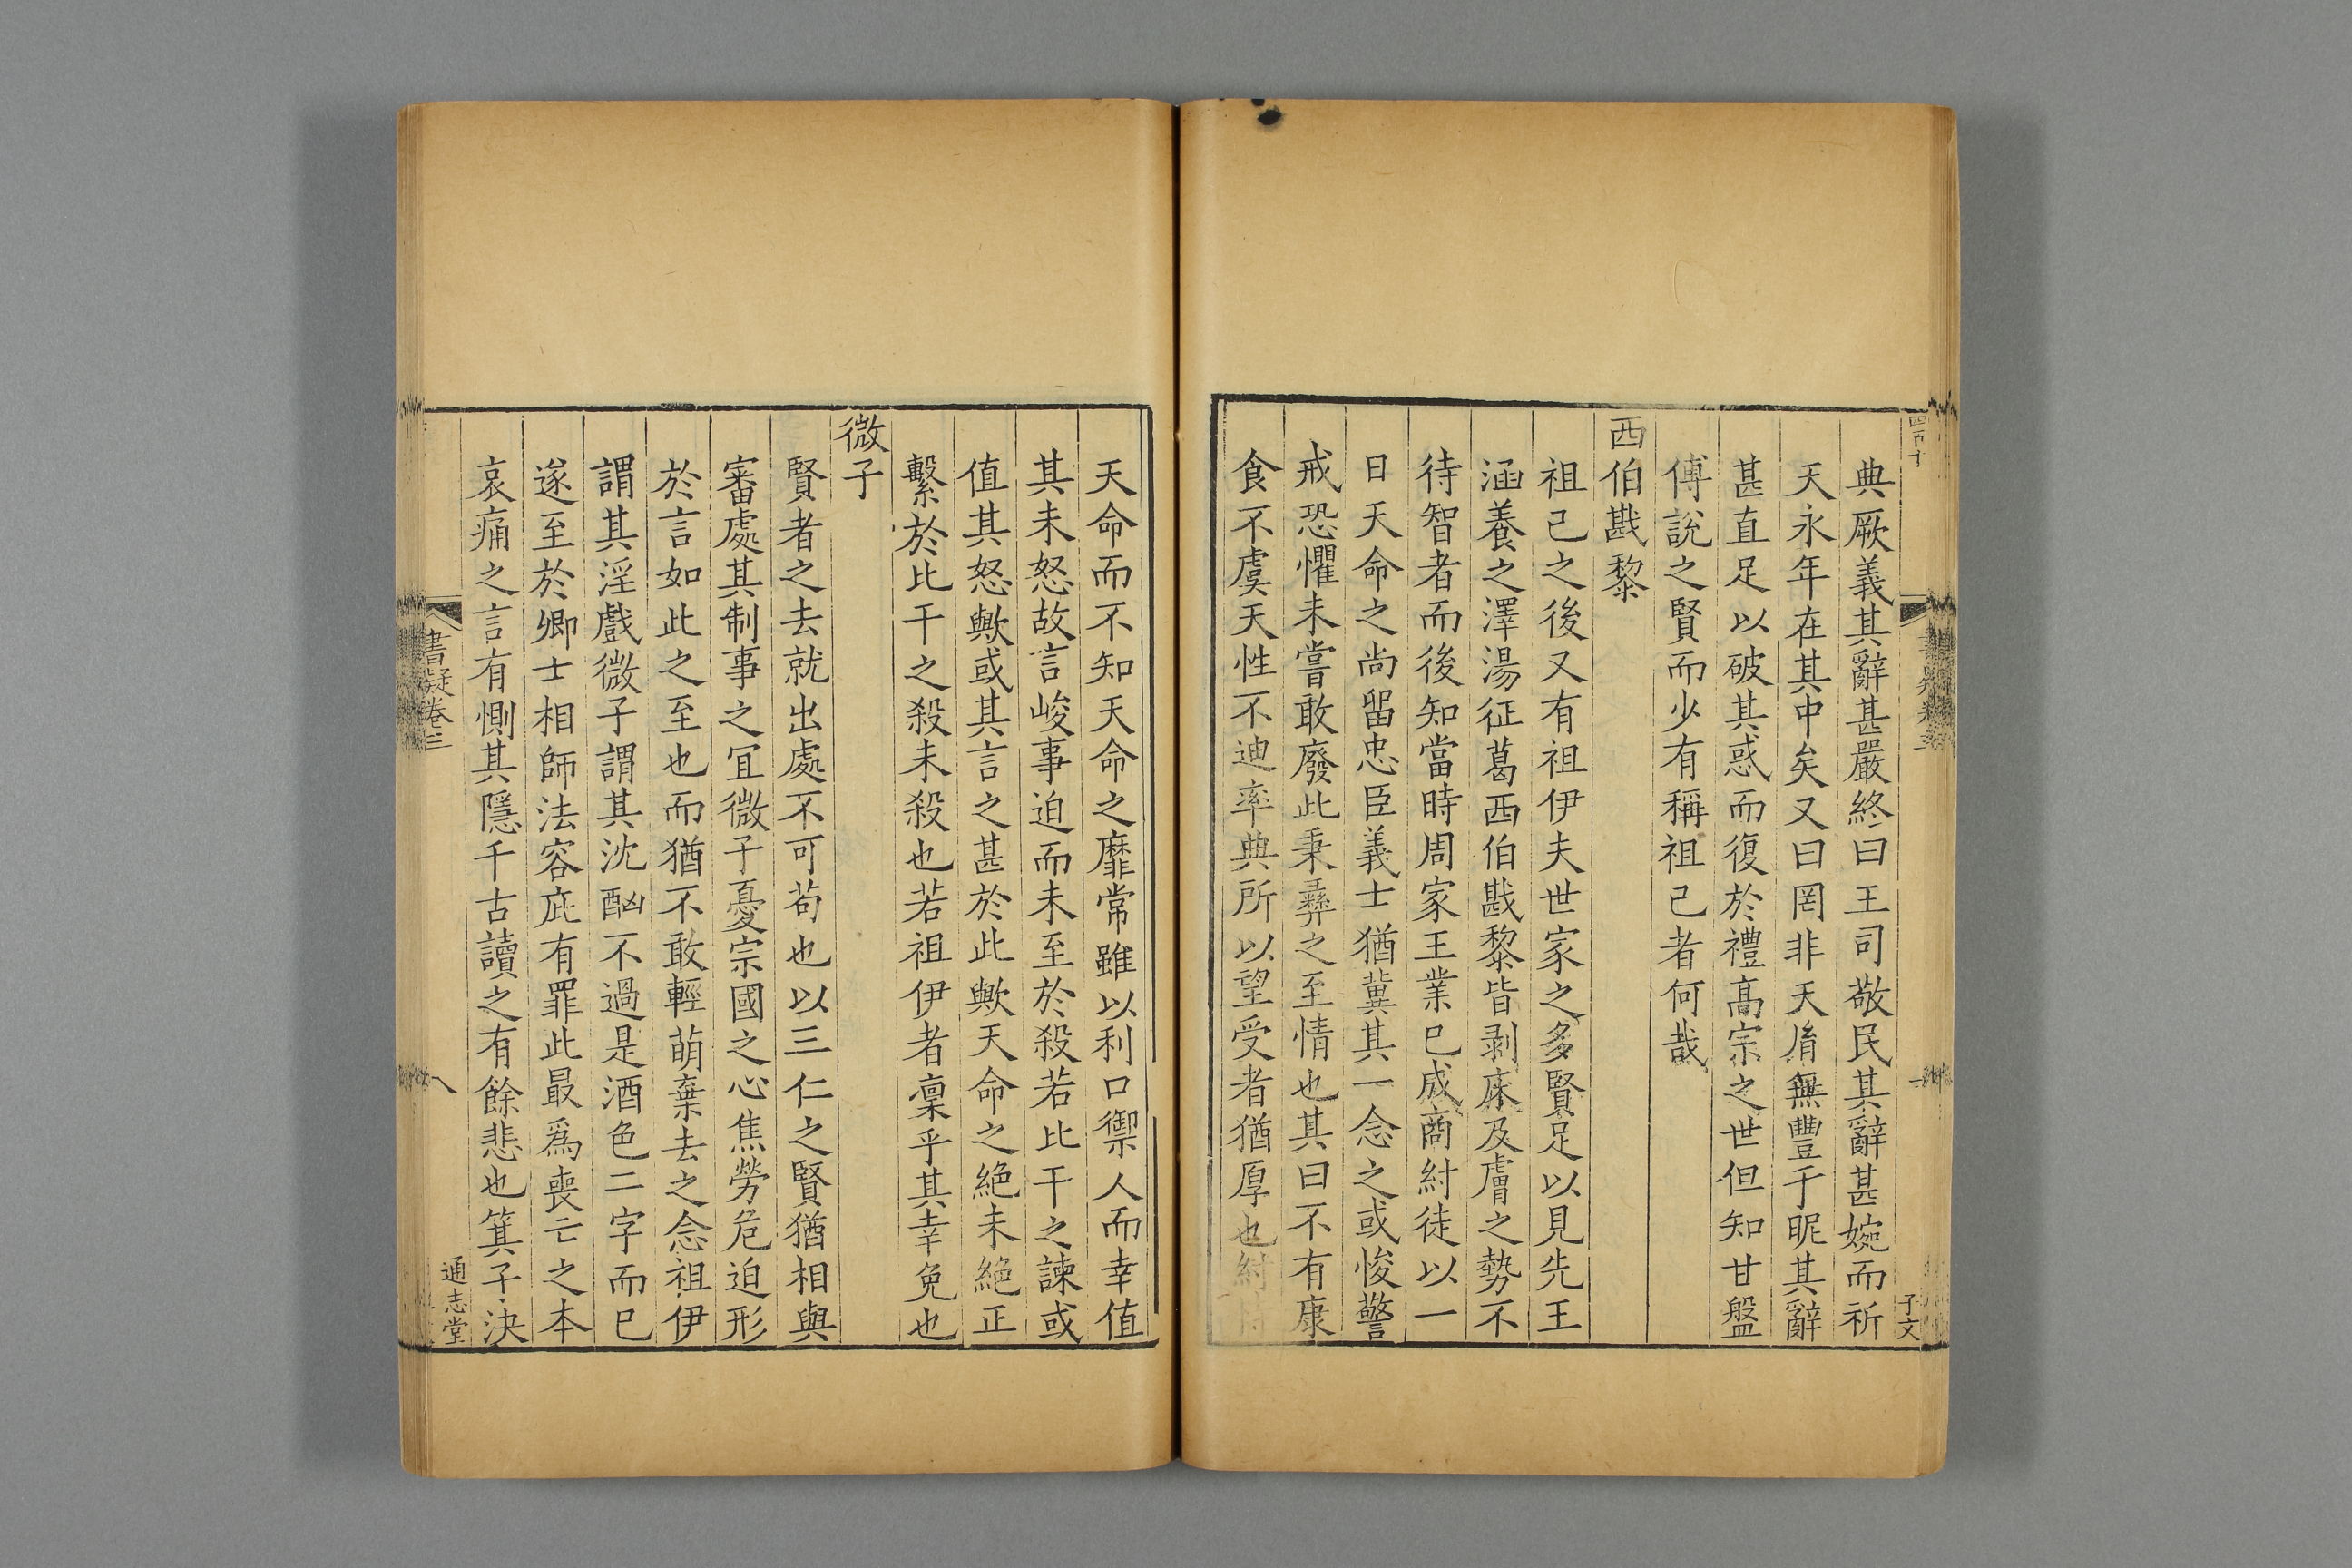 典厥義其辭甚嚴終曰王司敬民其辭甚婉而祈
天永年在其中矣又曰罔非天㣧無豐于昵其辭
甚直足以破其惑而復於禮髙宗之世但知甘盤
傅說之賢而少有稱祖己者何哉
西伯戡黎
祖己之後又有祖伊夫世家之多賢足以見先王
涵養之澤湯征葛西伯戡黎皆剥床及膚之勢不
待智者而後知當時周家王業巳成商紂徒以一
日天命之尚畱忠臣義士猶冀其一念之或悛警
戒恐懼未嘗敢廢此秉彞之至情也其曰不有康
食不虞天性不迪率典所以望受者猶厚也紂
天命而不知天命之靡常雖以利口禦人而幸值
其未怒故言峻事迫而未至於殺若比干之諫或
值其怒歟或其言之甚於此歟天命之絶未絶正
繫於比干之殺未殺也若祖伊者凜乎其幸免也
微子
賢者之去就出處不可茍也以三仁之賢猶相與
審處其制事之宜微子憂宗國之心焦勞危迫形
於言如此之至也而猶不敢輕萌棄去之念祖伊
謂其淫戲微子謂其沈酗不過是酒色二字而巳
遂至於卿士相師法容庇有罪此最爲喪亡之本
哀痛之言有惻其隱千古讀之有餘悲也箕子決
書疑卷三
八
通志堂
子文